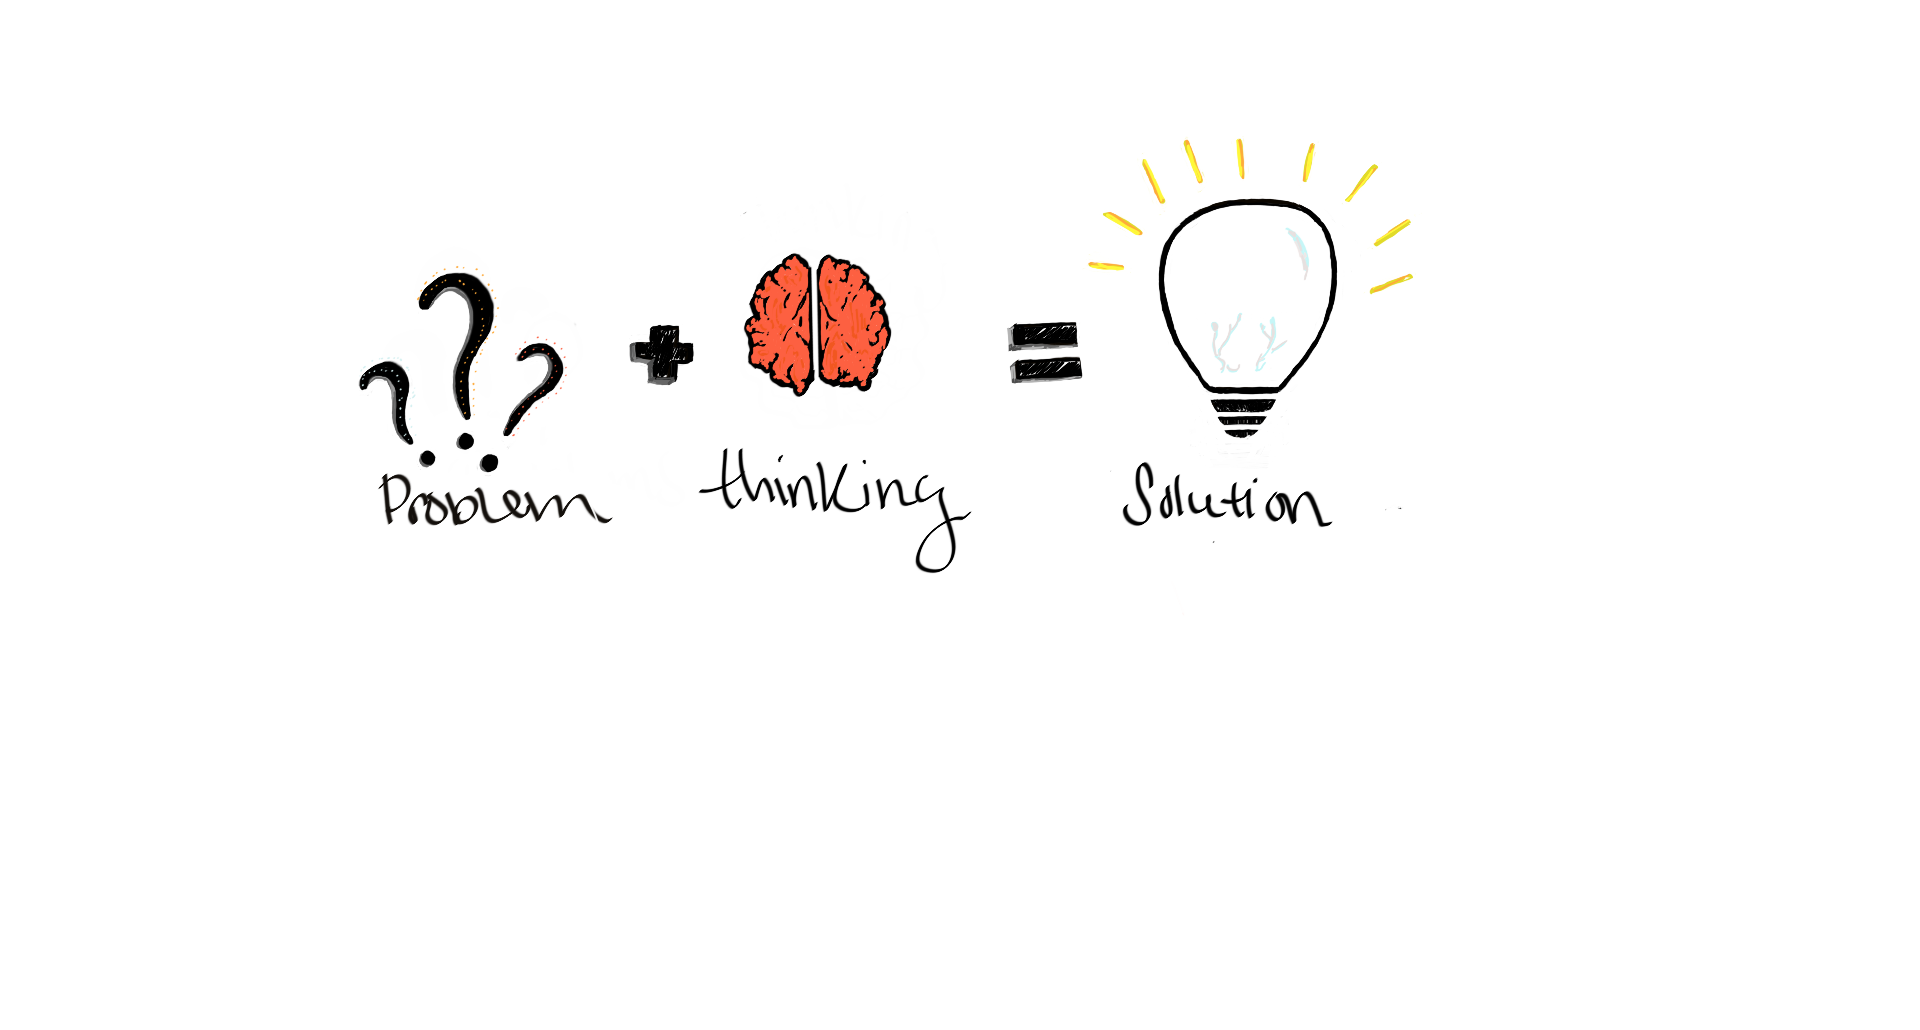 ? ? ?
Problem + thinking = Solution